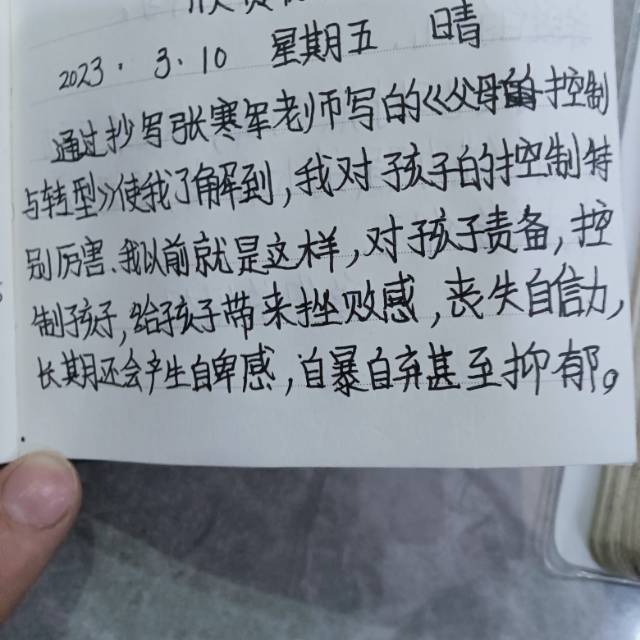 2023.3.10 星期五 晴
通过抄写张寒军老师写的《父母的控制
与转型》使我了解到,我对孩子的控制特
别厉害、我以前就是这样,对孩子责备,控
制孩子,给孩子带来挫败感,丧失自信力,
长期还会产生自卑感,自暴自弃甚至抑郁。